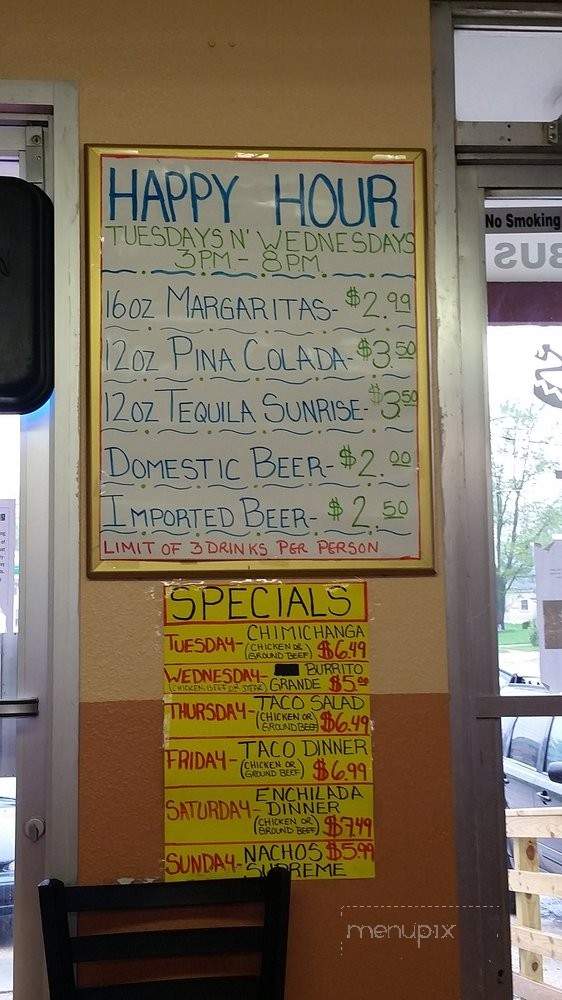 HAPPY HOUR
TUESDAYS N' WEDNESDAYS
3PM - 8PM
16OZ MARGARITAS- $2.99
12OZ PINA COLADA- $3.50
12OZ TEQUILA SUNRISE- $3.50
DOMESTIC BEER- $2.00
IMPORTED BEER- $2.50
LIMIT OF 3 DRINKS PER PERSON
SPECIALS
TUESDAY- CHIMICHANGA
(CHICKEN OR
GROUND BEEF) $6.49
WEDNESDAY- BURRITO
(CHICKEN, BEEF OR STEAK) GRANDE $5.00
THURSDAY- TACO SALAD
(CHICKEN OR
GROUND BEEF) $6.49
FRIDAY- TACO DINNER
(CHICKEN OR
GROUND BEEF) $6.99
SATURDAY- ENCHILADA
DINNER
(CHICKEN OR
GROUND BEEF) $7.49
SUNDAY- NACHOS $5.99
SUPREME
No Smoking
BUS
menupix